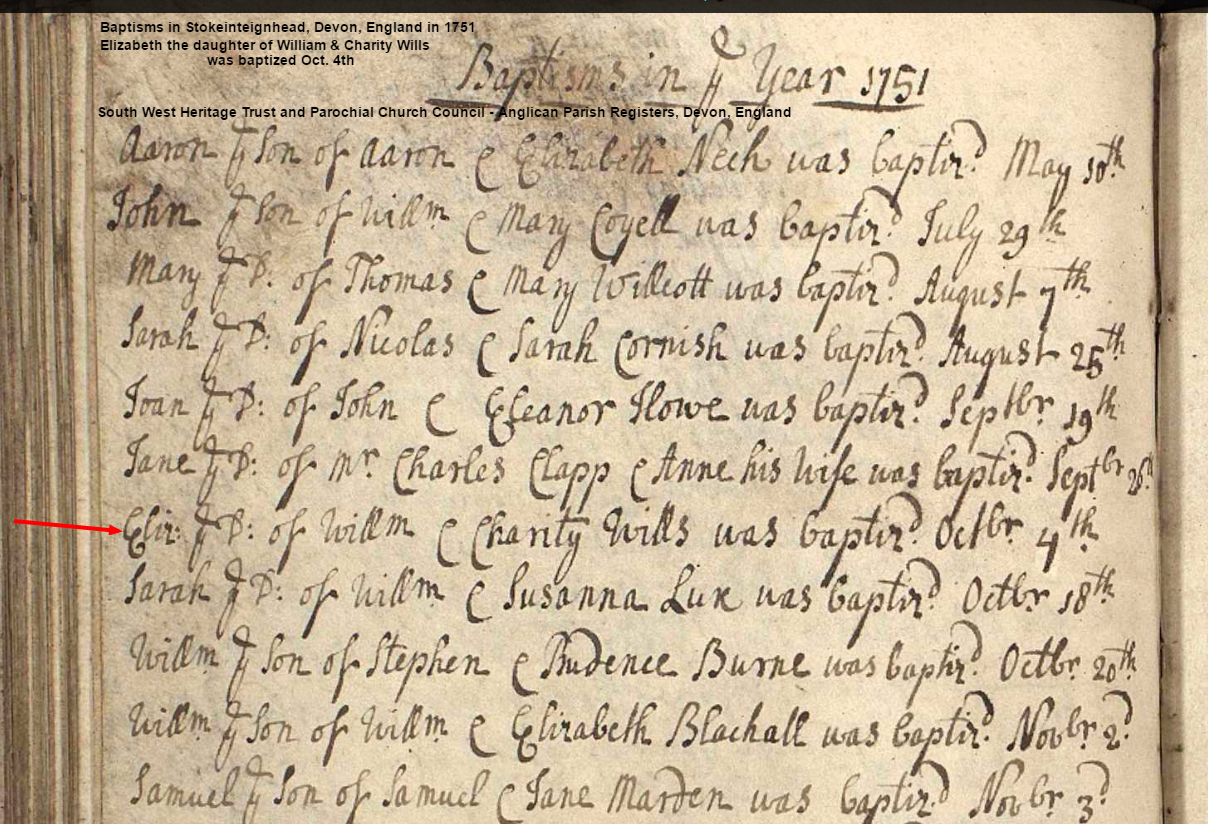 Baptisms in Stokeinteignhead, Devon, England in 1751
Elizabeth the daughter of William & Charity Wills
was baptized Oct. 4th
Baptisms in ye Year 1751
South West Heritage Trust and Parochial Church Council - Anglican Parish Registers, Devon, England
Aaron ye Son of Aaron & Elizabeth Neck was baptiz'd May 10th
John ye Son of Willm & Mary Coyell was baptiz'd July 29th
Mary ye D: of Thomas & Mary Willcott was baptiz'd August 7th
Sarah ye D: of Nicolas & Sarah Cornish was baptiz'd August 25th
Joan ye D: of John & Eleanor Howe was baptiz'd Septbr 19th
Jane ye D: of Mr Charles Clapp & Anne his Wife was baptiz'd Septbr 26th
Eliz: ye D: of Willm & Charity Wills was baptiz'd Octbr 4th
Sarah ye D: of Willm & Susanna Lux was baptiz'd Octbr 18th
Willm ye Son of Stephen & Prudence Burne was baptiz'd Octbr 20th
Willm ye Son of Willm & Elizabeth Blachall was baptiz'd Novbr 2d
Samuel ye Son of Samuel & Jane Marden was baptiz'd Novbr 3d